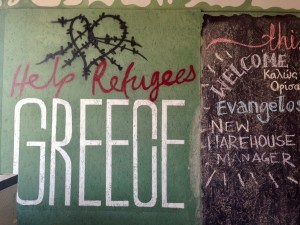 Help Refugees
GREECE
this
WELCOME
Καλώς
Ορίσα
Evangelos
NEW
WAREHOUSE
MANAGER